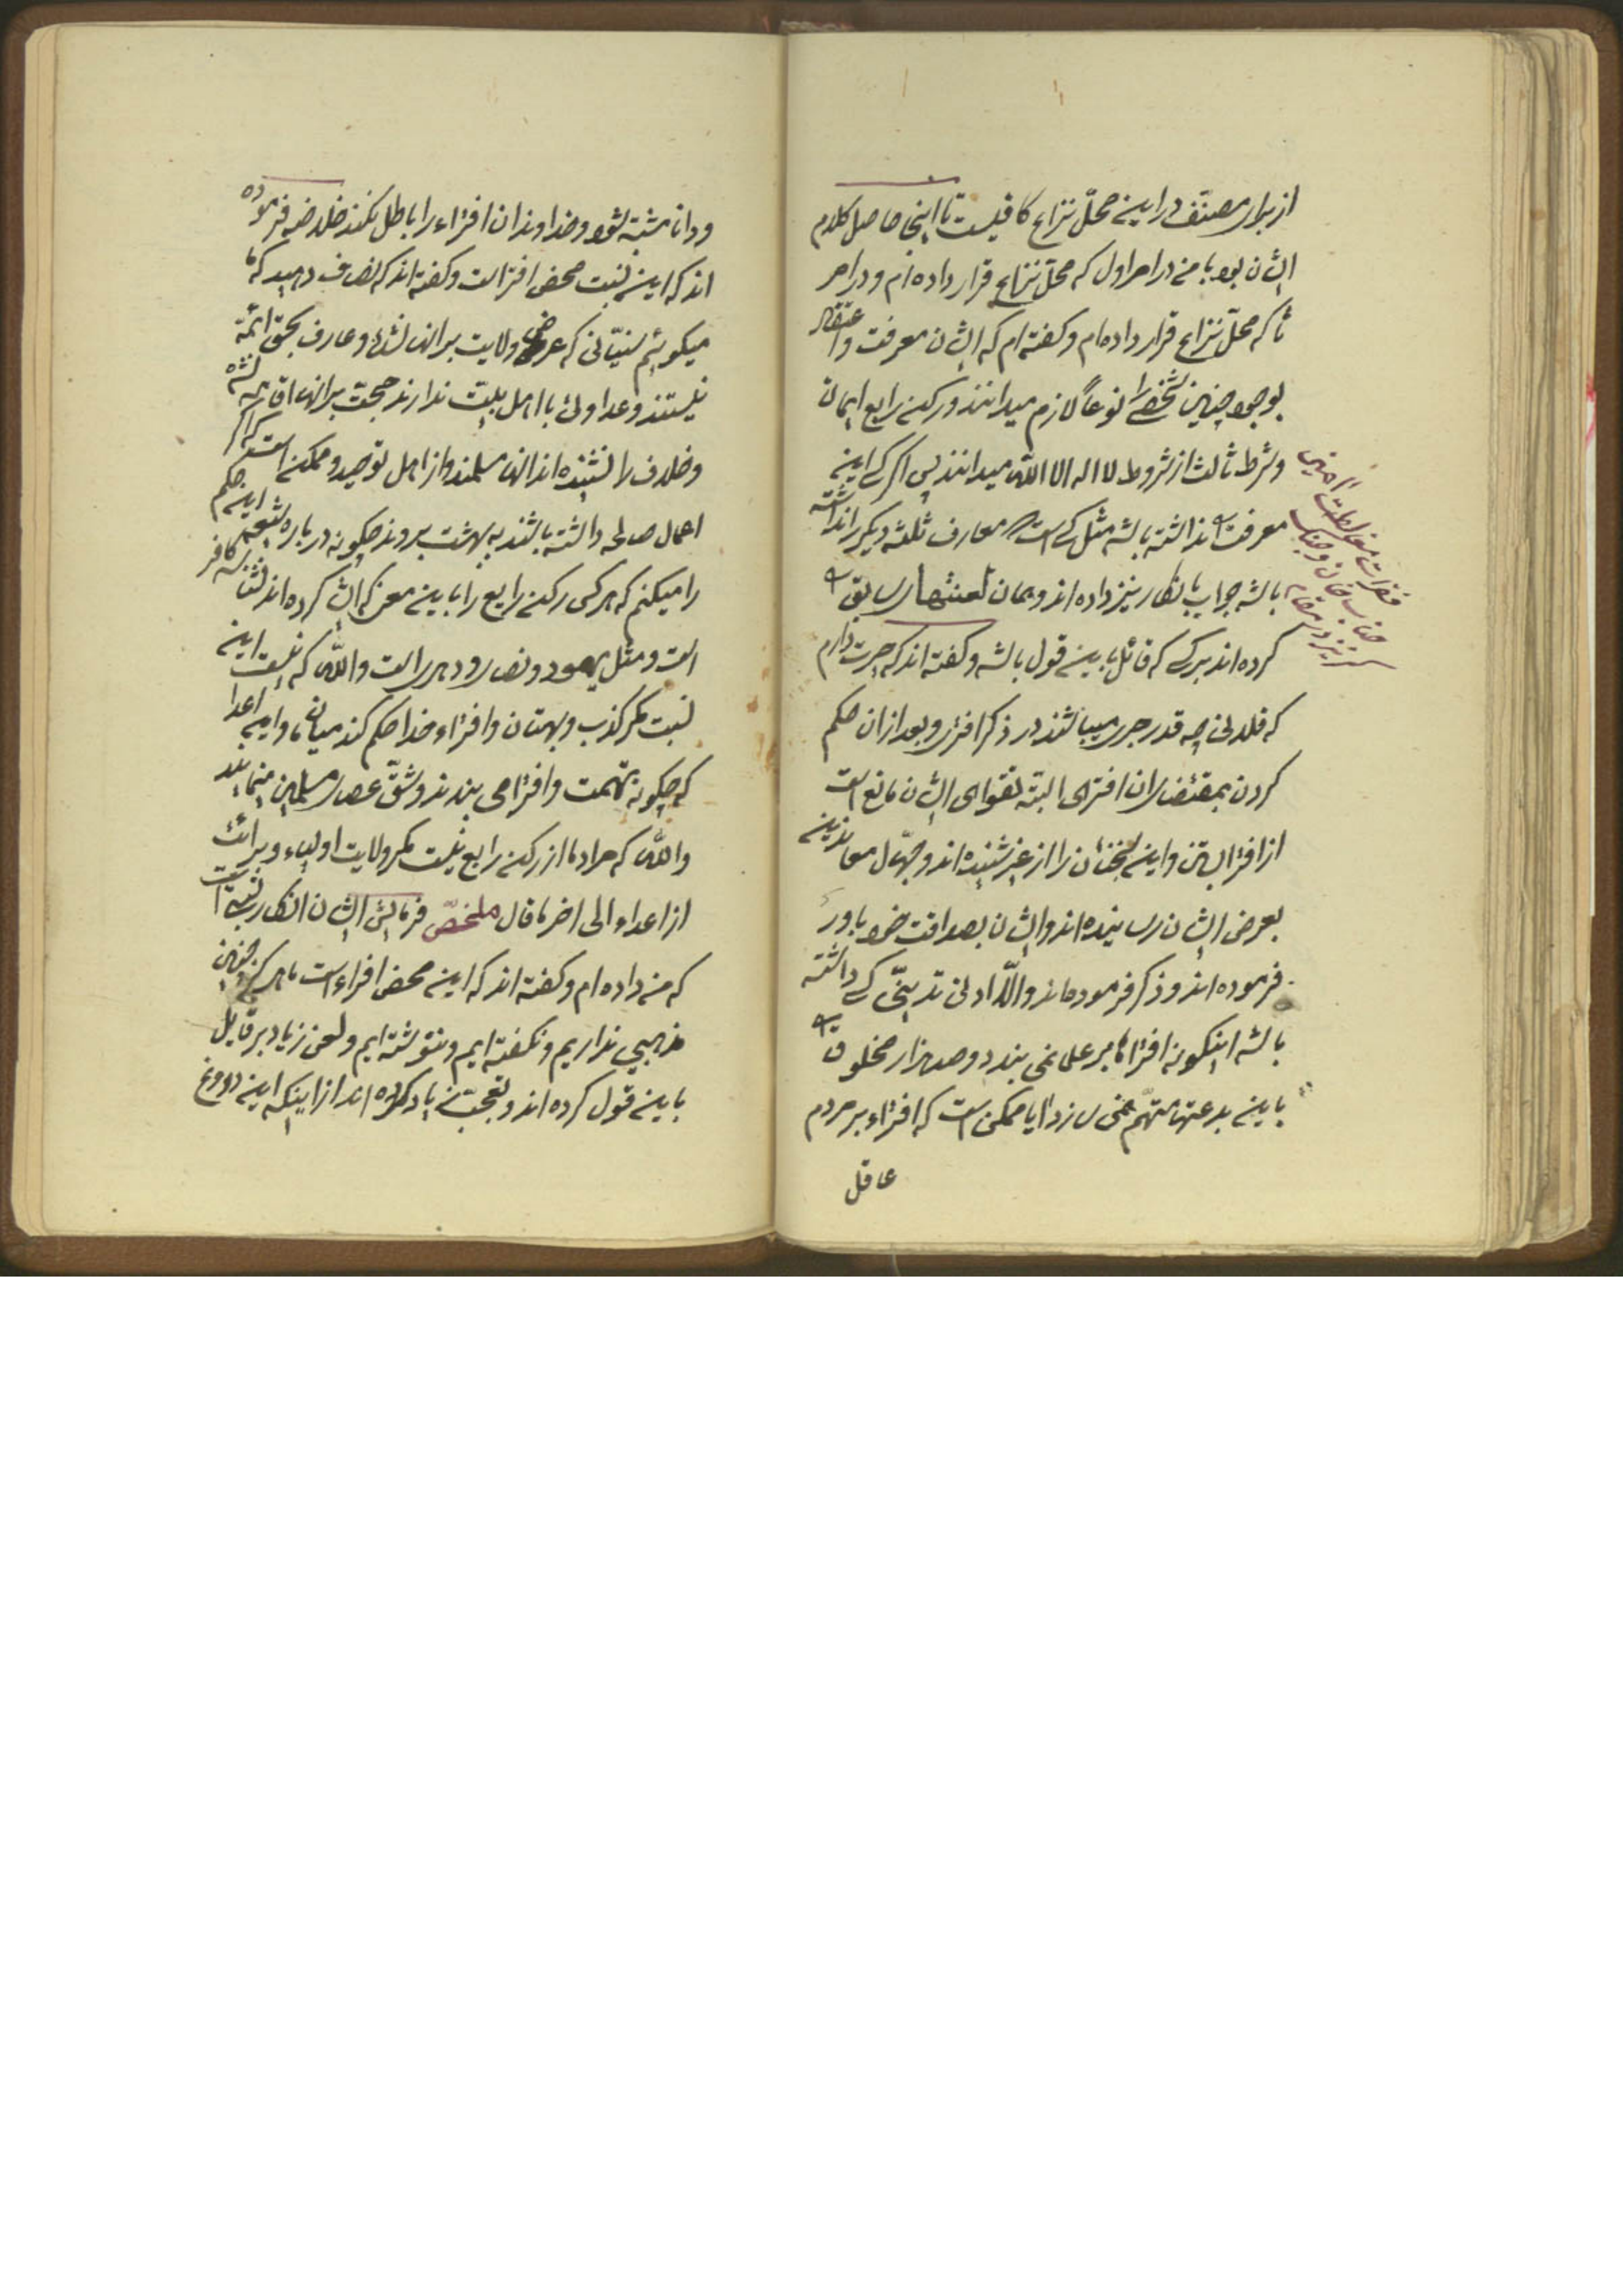 از برای مصنف در این محلّ نزاع کافیست تا اینجا حاصل کلام
ایشان بود با من در امر اول که محلّ نزاع قرار داده‌ام و در امر
ثانی که محلّ نزاع قرار داده‌ام و گفته‌ام که ایشان معرفت و اعتقاد
بوجود چنین شخصی را نوعاً لازم میدانند و رکن رابع ایمان
و شرط ثالث از شروط لا اله الا الله میدانند پس اگر کسی این
معرفت را نداشته باشد مثل کسی است که معارف ثلثه دیگر را نداشته
باشد جواب بانکار نیز داده‌اند و همان لعنتهای سابق را
کرده‌اند بر کسی که قائل باین قول باشد و گفته‌اند که حیرت دارم
که فلانی چه قدر جری میباشند در ذکر افتری و بعد از ان حکم
کردن بمقتضای ان افترای البته تقوای ایشان مانع است
از افترا بستن و این سخنان را از غیر شنیده‌اند و جهّال معاندین
بعرض ایشان رسانیده‌اند و ایشان بصداقت خود باور
فرموده‌اند و ذکر فرموده‌اند والّا ادنی تدینّی کسی داشته
باشد اینگونه افتراها بر علما نمی بندد و صد هزار مخلوق را
باین بدعتها متهّم نمی سازد ایا ممکن است که افتراء بر مردم
عاقل
فقرات مغالطت آمیز
جناب خان و جنگ
گریز در مقام
و دانا مشتبه شود و خداوند ان افتراء را باطل نکند خلاصه فرموده
اند که این نسبت محض افتراست و گفته‌اند که انصاف دهید که ما
میگوئیم سنیّانی که عرض ولایت بر انها نشده و عارف بحق ائمّه
نیستند و عداوتی با اهل بیت ندارند حجت بر انها اقامه نشده
و خلاف را نشنیده‌اند انها مسلمند و از اهل توحید و ممکن است که اگر
اعمال صالحه داشته باشند به بهشت بروند چگونه در باره شیعه این حکم
را میکنم که هر کس رکن رابع را باین معنی که ایشان کرده‌اند نشناسد کافر
است و مثل یهود و نصاری و دهری است والله که نیست این
نسبت مگر کذب و بهتان و افتراء خدا حکم کند میان ما و این اعدا
که چگونه تهمت و افترا می بندند و شقّ عصای مسلمین مینمایند
والله که مراد ما از رکن رابع نیست مگر ولایت اولیاء و برائت
از اعداء الی اخر ما قال ملخصّ فرمایش ایشان انکار نسبتی است
که من داده‌ام و گفته‌اند که این محض افتراء است ما هرگز چنین
مذهبی نداریم و نگفته‌ایم و ننوشته‌ایم و لعن زیاد بر قایل
باین قول کرده‌اند و تعجّب زیاد کرده‌اند از اینکه این دروغ